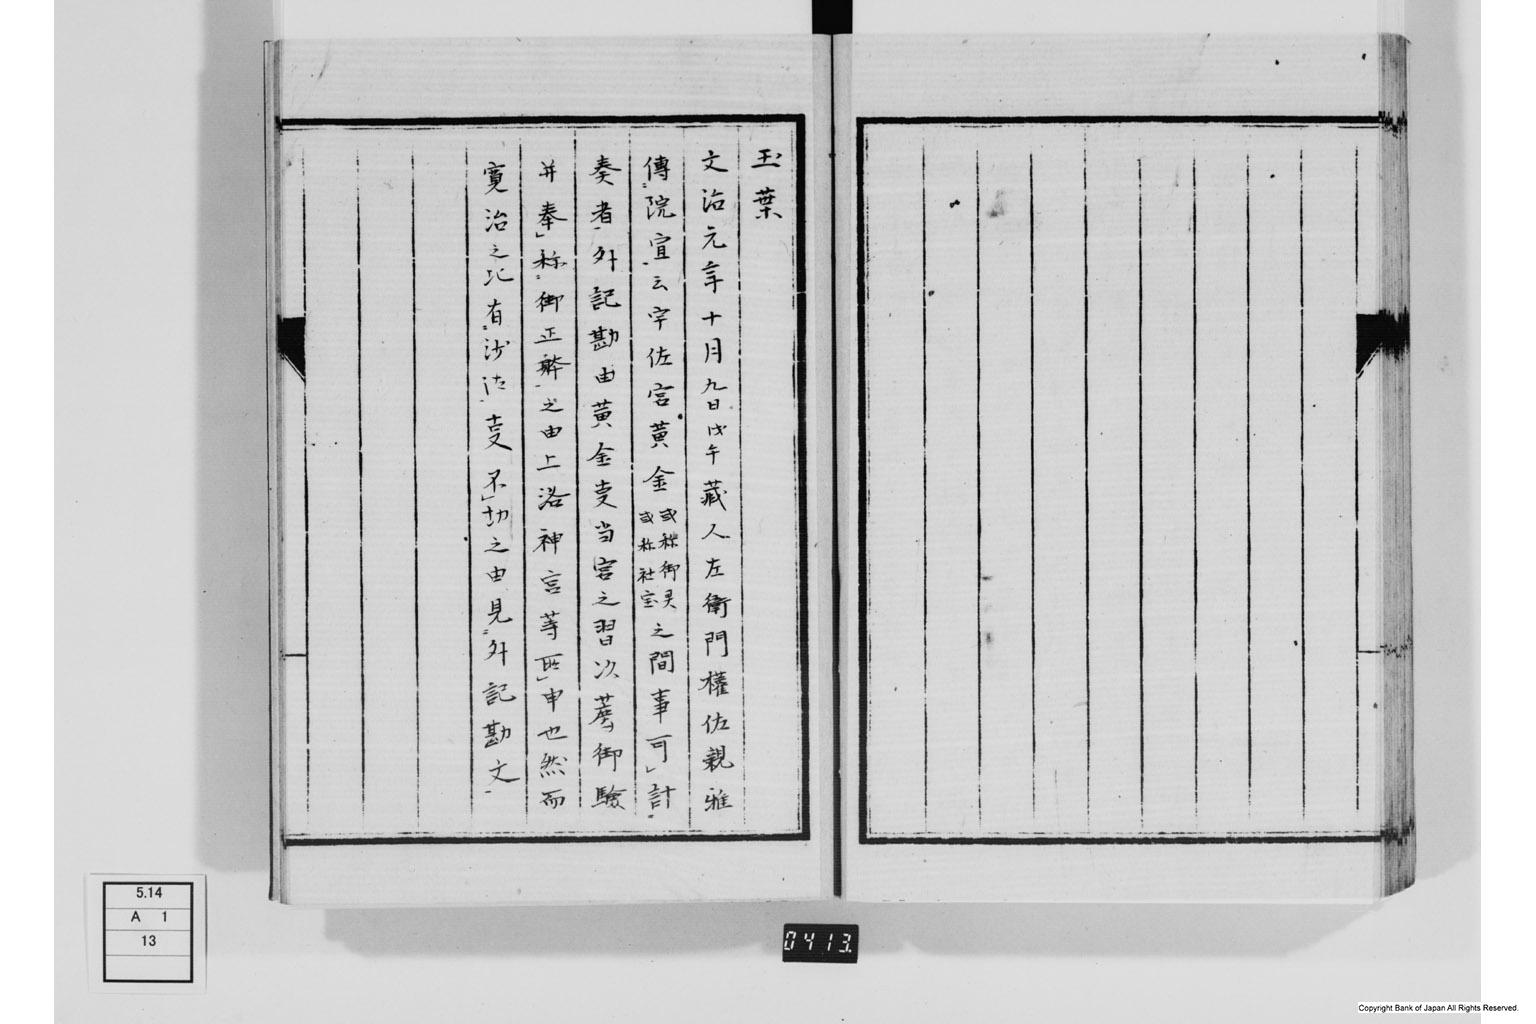 玉葉
文治元年十月九日戊午藏人左衛門權佐親雅
傳院宣云宇佐宮黃金或稱御灵或称社宝之間事可計
奏者外記勘由黃金事当宮之習次薦御驗
并奉称御正躰之由上洛神宮等所申也然而
寛治之比有沙汰
不
之由見外記勘文
0413
5.14
A 1
13
Copyright Bank of Japan All Rights Reserved.